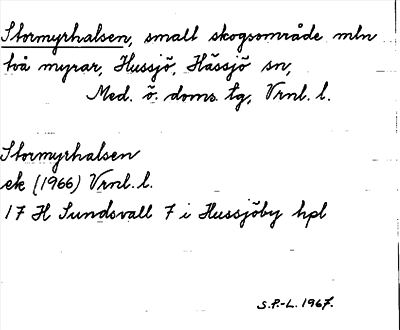 Stormyrhalsen, smalt skogsområde mln
två myrar, Hussjö, Hässjö sn,
Med. ö. doms. tg, Vrnl. l.
Stormyrhalsen
ek (1966) Vrnl. l.
17 H Sundsvall 7 i Hussjöby hpl
S.P.-L. 1967.